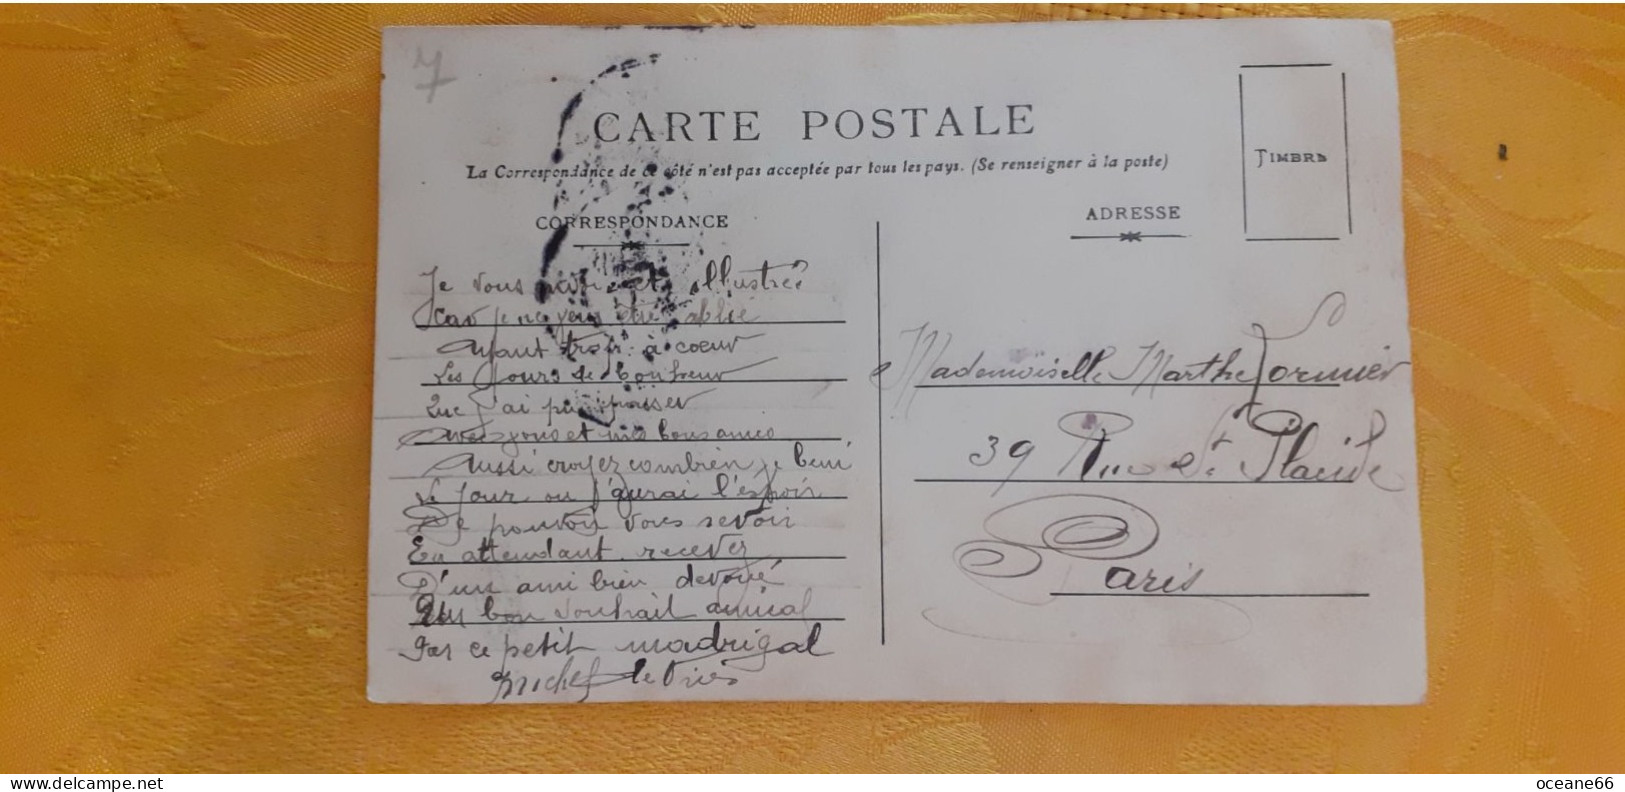 7
CARTE POSTALE
La Correspondance de ce côté n'est pas acceptée par tous les pays. (Se renseigner à la poste)
CORRESPONDANCE
ADRESSE
TIMBRE
Je vous illustrée
car je
Ayant trop à coeur
Les jours de bonheur
Que j'ai pu passer
Avec vous et mes bons amis
Aussi croyez combien je beni
Le jour ou j'aurai l'espoir
De pouvoir vous revoir
En attendant recevez
D'un ami bien devoué
Un bon souhait amical
Par ce petit madrigal
Michel de Vries
Mademoiselle Marthe Formier
39 Rue St Placide
Paris
oceane66